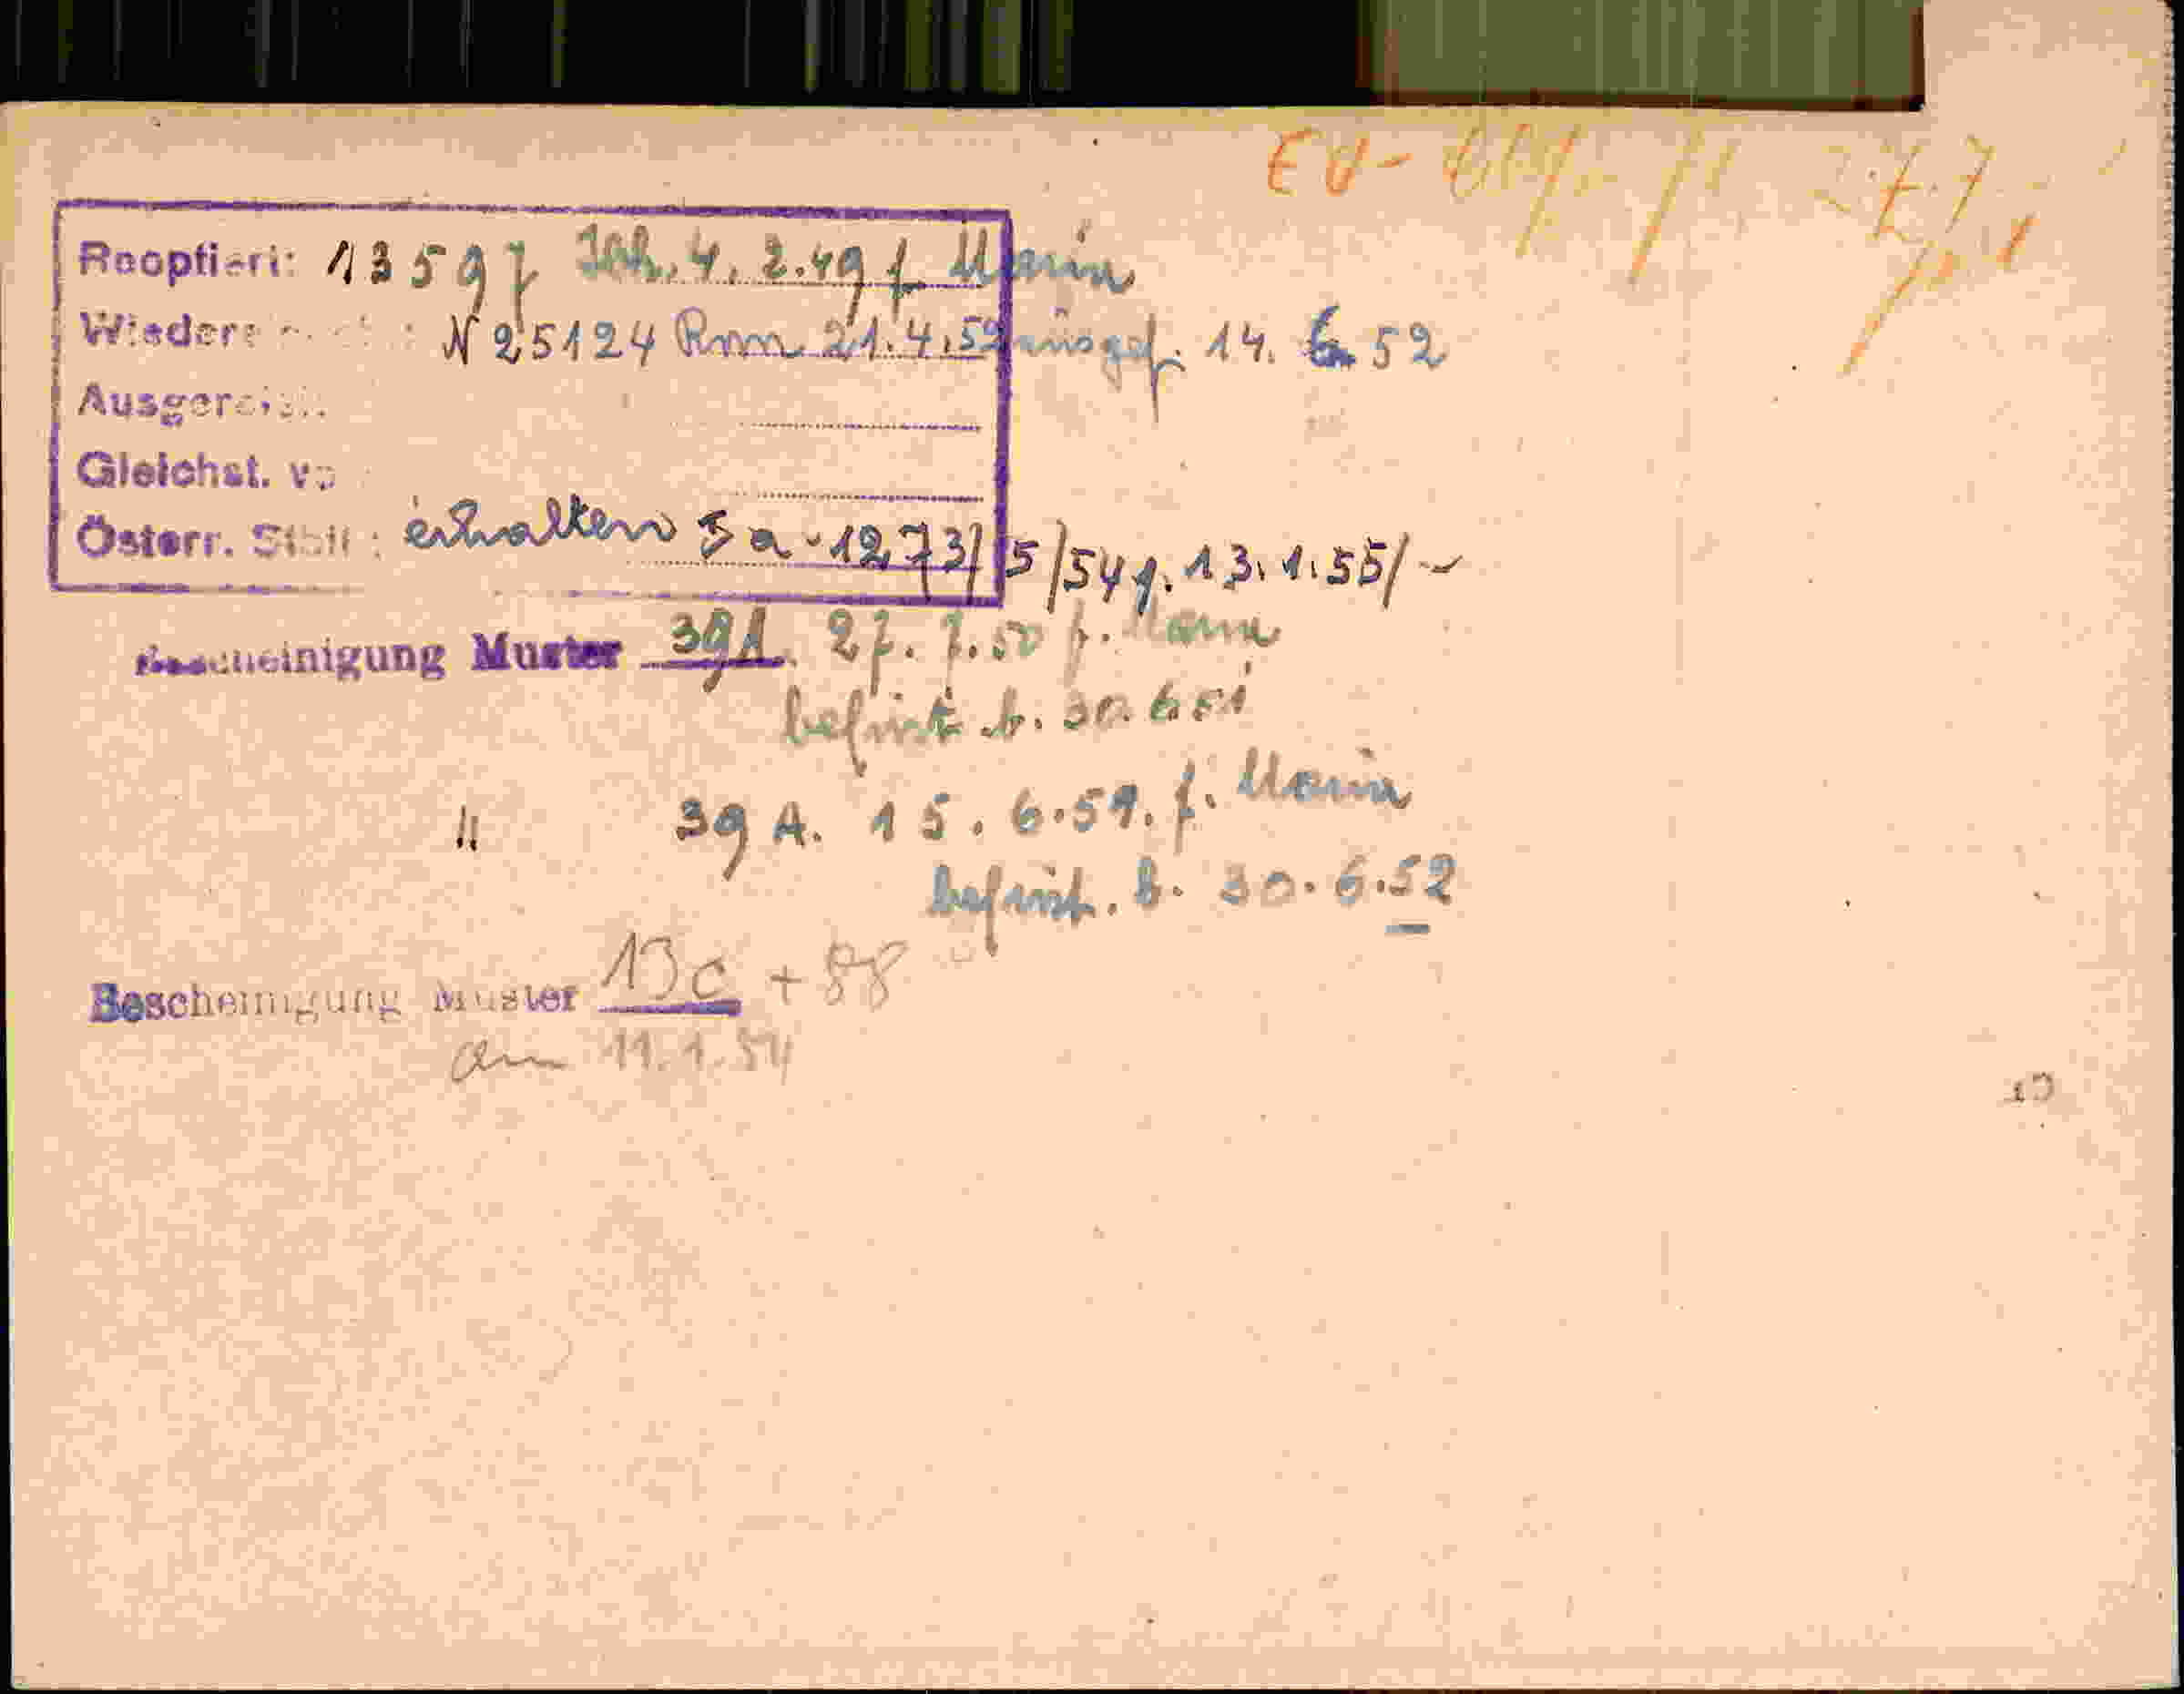 EV-
Reoptiert: 13597 Ibk. 4. 2. 49 f. Maria
N 25124 Rom 21. 4. 52 ausgef. 14. 6. 52
Ausgereist:
Gleichst.
Österr. Stbü: erhalten Ia-1273/5/54 y. 13. 1. 55/
Bescheinigung Muster 39A. 27. 7. 50 f. Maria
befrist. b. 30. 6. 51
" 39 A. 15. 6. 51. f. Maria
befrist. b. 30. 6. 52
Bescheinigung Muster 13c + 88
am 11. 1. 54